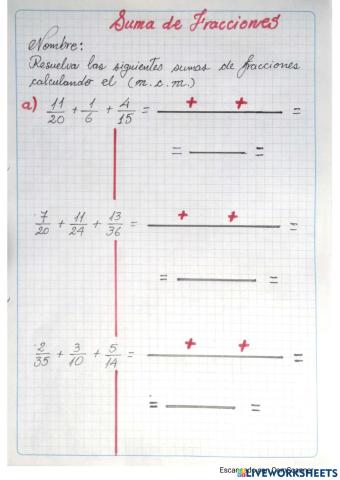 Suma de Fracciones
Nombre:
Resuelva las siguientes sumas de fracciones
calculando el (m.c.m.)
a) 11/20 + 1/6 + 4/15 = + + =
= =
7/20 + 11/24 + 13/36 = + + =
= =
2/35 + 3/10 + 5/14 = + + =
= =
Escaneado con CamScanner
LIVEWORKSHEETS